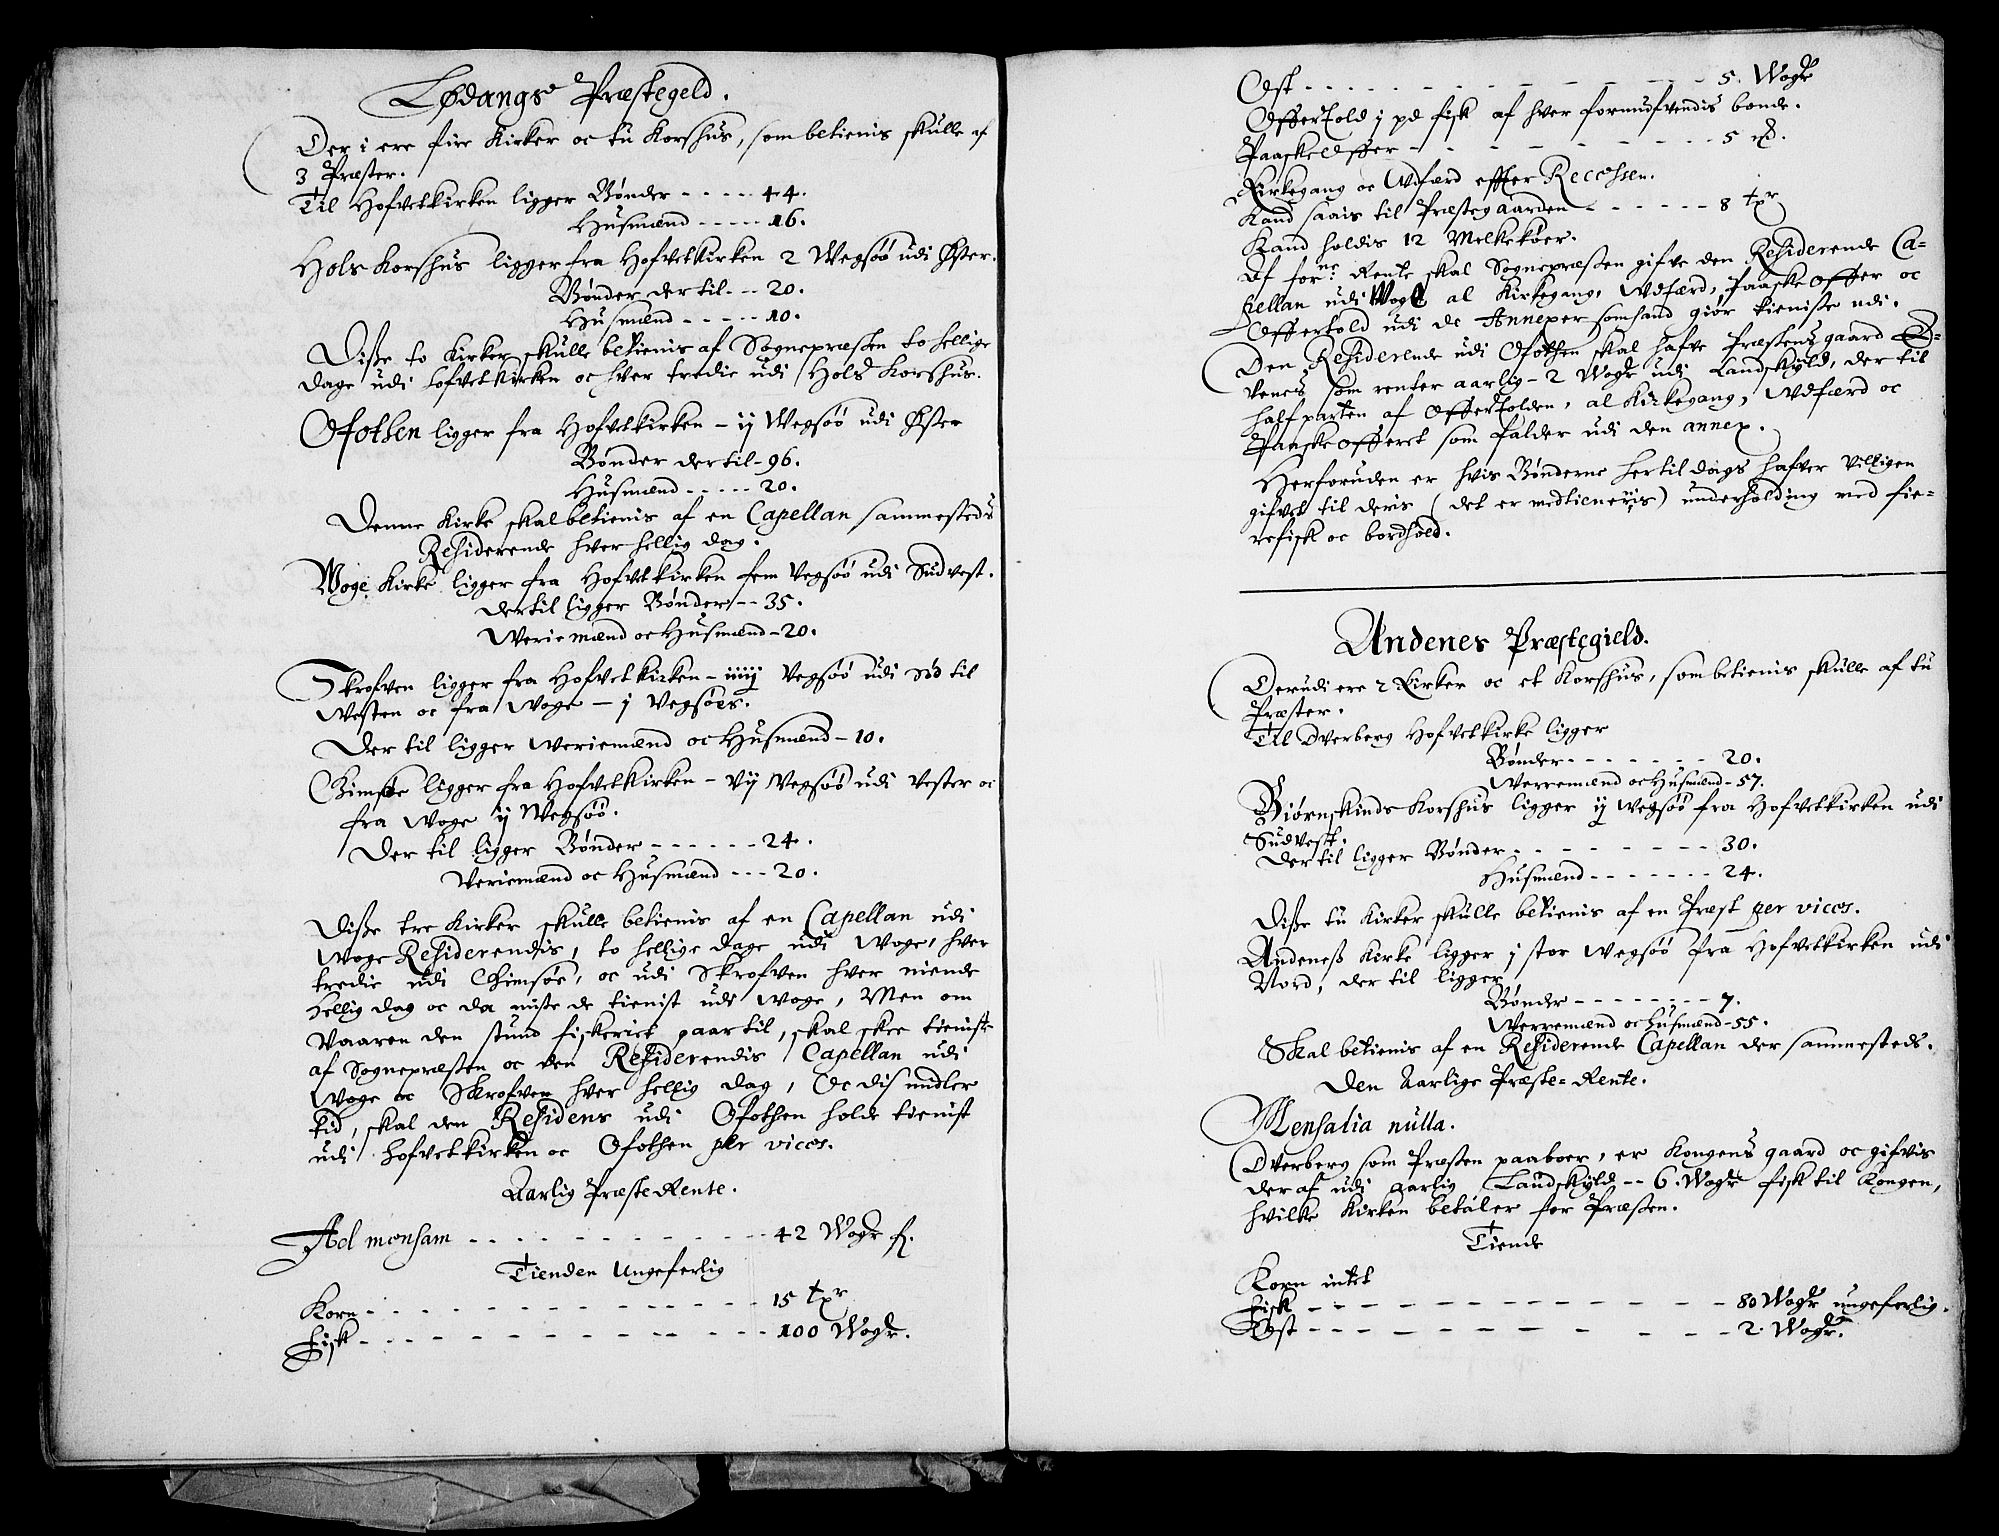 Lødangs Præstegeld.
Der i ere fire Kirker oc tu Korshus, som betienis skulle af
3 Præster.
Til Hofvetkirken ligger Bønder - - - - - 44.
Husmænd - - - - - 16.
Hols Korshus ligger fra Hofvetkirken 2 Wegsøø udi Øster.
Bønder der til - - - 20.
Husmænd - - - - - 10.
Disse to Kirker skulle betienis af Sognepræsten to hellige
dage udi hofvetkirken oc hver tredie udi Hols Korshus.
Ofothen ligger fra Hofvetkirken - ij Wegsøø udi Øster
Bønder der til - 96.
Husmænd - - - - - 20.
Denne Kirke skal betienis af en Capellan sammesteds
Residerende hver hellig dag.
Woge Kirke ligger fra Hofvetkirken fem Vegsøø udi Sudvest.
dertil ligger Bønder - - 35.
Weriemænd oc Husmænd - 20.
Skrofven ligger fra Hofvetkirken - iiiij Vegsøø udi Sød til
Westen oc fra Woge - j Vegsøes.
Der til ligger Weriemænd oc Husmænd - 10.
Gimsøe ligger fra Hofvetkirken - vij Wegsøø udi Vester oc
fra Woge ij Wegsøø.
Der til ligger Bønder - - - - - - 24.
Veriemænd oc Husmænd - - - 20.
Disse tre Kirker skulle betienis af en Capellan udi
Woge Residerendis, to hellige dage udi Woge, hver
tredie udi Gimsøe, oc udi Skrofven hver niende
hellig dag oc da miste de tienist udi Woge, Men om
Vaaren den stund fiskeriet paar til, skal skee tieniste
af Sognepræsten oc den Residerendis Capellan udi
Woge oc Skrofven hver hellig dag, Oc dis midler
tid, skal den Residens udi Ofothen holde tienist
udi hofvetkirken oc Ofothen per vices.
Aarlig Præste Rente.
Ad mensam - - - - - - - - - 42 Wogr f.
Tienden Ungeferlig
Korn - - - - - - - - - - - - 15 tpr
Fisk - - - - - - - - - - - - 100 Wogr.
Ost - - - - - - - - - - - - 5. Wogr
Offertold j pd fisk af hver formufvendis bonde.
Paaskeoffer - - - - - - - - - - 5 rd.
Kirkegang oc Udfærd effter Recessen.
Kand saais til Præstegaarden - - - - - - 8 tpr
Kand holdis 12 Melkekøer.
Af forne Rente skal Sognepræsten gifve den Residerende Ca=
pellan udi Woge al Kirkegang, Udfærd, Paaske Offer oc
Offertold udi de Annexer som hand giør tieniste udi.
Den Residerende udi Ofothen skal hafve Præstens gaard
venes som renter aarlig - 2 Wogr udi Landskyld, der til
halfparten af Offertolden, al Kirkegang, Udfærd oc
Paaske Offeret som falder udi den annex.
Herforuden er hvis Bønderne hertil dags hafver villigen
gifvet til deris (det er medtieneris) underholding med fie=
refisk oc bordhold.
Andenes Præstegield.
Derudi ere 2 Kirker oc et Korshus, som betienis skulle af tu
Præster.
Til Dverberg Hofvetkirke ligger
Bønder - - - - - - - 20.
Werremænd oc Husmænd - 57.
Biørnskinds Korshus ligger ij Wegsøø fra Hofvetkirken udi
Sudvest.
Der til ligger Bønder - - - - - - - - - 30.
Husmænd - - - - - - - 24.
Disse tu Kirker skulle betienis af en Præst per vices.
Andeness Kirke ligger j stor Wegsøø fra Hofvetkirken udi
Nord, der til ligger
Bønder - - - - - - - - 7.
Werremænd oc husmænd - 55.
Skal betienis af en Residerende Capellan der sammesteds.
Den Aarlige Præste=Rente.
Mensalia nulla.
Dverberg som Præsten paaboer, er Kongens gaard oc gifvis
deraf udi aarlig Landskyld - - 6. Wogr fisk til Kongen,
hvilke Kirken betaler for Præsten.
Tiende
Korn intet
Fisk - - - - - - - - - - - - 80 Wogr ungeferlig.
Ost - - - - - - - - - - - - 2. Wogr.